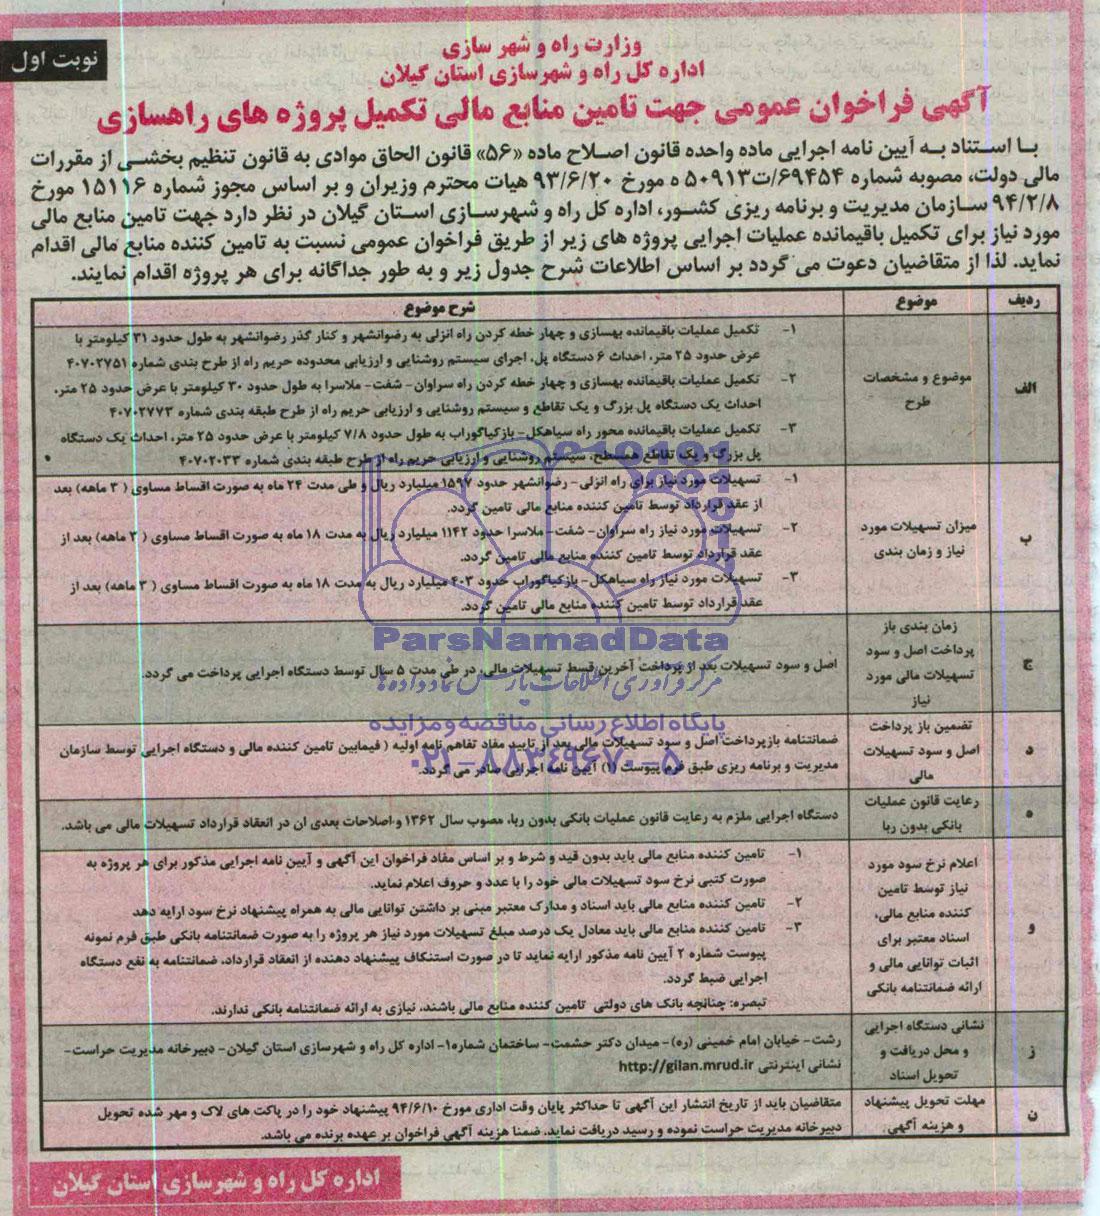 نوبت اول
وزارت راه و شهر سازی
اداره کل راه و شهرسازی استان گیلان
آگهی فراخوان عمومی جهت تامین منابع مالی تکمیل پروژه های راهسازی
با استناد به آیین نامه اجرایی ماده واحده قانون اصلاح ماده «۵۶» قانون الحاق موادی به قانون تنظیم بخشی از مقررات
مالی دولت، مصوبه شماره ۶۹۴۵۴/ت۵۰۹۱۳ ه مورخ ۹۳/۶/۲۰ هیات محترم وزیران و بر اساس مجوز شماره ۱۵۱۱۶ مورخ
۹۴/۲/۸ سازمان مدیریت و برنامه ریزی کشور، اداره کل راه و شهرسازی استان گیلان در نظر دارد جهت تامین منابع مالی
مورد نیاز برای تکمیل باقیمانده عملیات اجرایی پروژه های زیر از طریق فراخوان عمومی نسبت به تامین کننده منابع مالی اقدام
نماید. لذا از متقاضیان دعوت می گردد بر اساس اطلاعات شرح جدول زیر و به طور جداگانه برای هر پروژه اقدام نمایند.
ردیف موضوع شرح موضوع
الف
موضوع و مشخصات
طرح
۱- تکمیل عملیات باقیمانده بهسازی و چهار خطه کردن راه انزلی به رضوانشهر و کنار گذر رضوانشهر به طول حدود ۳۱ کیلومتر با
عرض حدود ۲۵ متر، احداث ۶ دستگاه پل، اجرای سیستم روشنایی و ارزیابی محدوده حریم راه از طرح بندی شماره ۴۰۷۰۲۷۵۱
۲- تکمیل عملیات باقیمانده بهسازی و چهار خطه کردن راه سراوان- شفت- ملاسرا به طول حدود ۳۰ کیلومتر با عرض حدود ۲۵ متر،
احداث یک دستگاه پل بزرگ و یک تقاطع و سیستم روشنایی و ارزیابی حریم راه از طرح طبقه بندی شماره ۴۰۷۰۲۷۷۳
۳- تکمیل عملیات باقیمانده محور راه سیاهکل- بازکیاگوراب به طول حدود ۷/۸ کیلومتر با عرض حدود ۲۵ متر، احداث یک دستگاه
پل بزرگ و یک تقاطع همسطح، سیستم روشنایی و ارزیابی حریم راه از طرح طبقه بندی شماره ۴۰۷۰۲۰۳۳
ب
میزان تسهیلات مورد
نیاز و زمان بندی
۱- تسهیلات مورد نیاز برای راه انزلی- رضوانشهر حدود ۱۵۹۷ میلیارد ریال و طی مدت ۲۴ ماه به صورت اقساط مساوی ( ۳ ماهه) بعد
از عقد قرارداد توسط تامین کننده منابع مالی تامین گردد.
۲- تسهیلات مورد نیاز راه سراوان- شفت- ملاسرا حدود ۱۱۴۲ میلیارد ریال به مدت ۱۸ ماه به صورت اقساط مساوی ( ۳ ماهه) بعد از
عقد قرارداد توسط تامین کننده منابع مالی تامین گردد.
۳- تسهیلات مورد نیاز راه سیاهکل- بازکیاگوراب حدود ۴۰۳ میلیارد ریال به مدت ۱۸ ماه به صورت اقساط مساوی ( ۳ ماهه) بعد از
عقد قرارداد توسط تامین کننده منابع مالی تامین گردد.
ج
زمان بندی باز
پرداخت اصل و سود
تسهیلات مالی مورد
نیاز
اصل و سود تسهیلات بعد از پرداخت آخرین قسط تسهیلات مالی، در طی مدت ۵ سال توسط دستگاه اجرایی پرداخت می گردد.
د
تضمین باز پرداخت
اصل و سود تسهیلات
مالی
ضمانتنامه بازپرداخت اصل و سود تسهیلات مالی بعد از تایید مفاد تفاهم نامه اولیه ( فیمابین تامین کننده مالی و دستگاه اجرایی توسط سازمان
مدیریت و برنامه ریزی طبق فرم پیوست (۱) آیین نامه اجرایی صادر می گردد.
ه
رعایت قانون عملیات
بانکی بدون ربا
دستگاه اجرایی ملزم به رعایت قانون عملیات بانکی بدون ربا، مصوب سال ۱۳۶۲ و اصلاحات بعدی ان در انعقاد قرارداد تسهیلات مالی می باشد.
و
اعلام نرخ سود مورد
نیاز توسط تامین
کننده منابع مالی،
اسناد معتبر برای
اثبات توانایی مالی و
ارائه ضمانتنامه بانکی
۱- تامین کننده منابع مالی باید بدون قید و شرط و بر اساس مفاد فراخوان این آگهی و آیین نامه اجرایی مذکور برای هر پروژه به
صورت کتبی نرخ سود تسهیلات مالی خود را با عدد و حروف اعلام نماید.
۲- تامین کننده منابع مالی باید اسناد و مدارک معتبر مبنی بر داشتن توانایی مالی به همراه پیشنهاد نرخ سود ارایه دهد
۳- تامین کننده منابع مالی باید معادل یک درصد مبلغ تسهیلات مورد نیاز هر پروژه را به صورت ضمانتنامه بانکی طبق فرم نمونه
پیوست شماره ۲ آیین نامه مذکور ارایه نماید تا در صورت استنکاف پیشنهاد دهنده از انعقاد قرارداد، ضمانتنامه به نفع دستگاه
اجرایی ضبط گردد.
تبصره: چنانچه بانک های دولتی تامین کننده منابع مالی باشند، نیازی به ارائه ضمانتنامه بانکی ندارند.
ز
نشانی دستگاه اجرایی
و محل دریافت و
تحویل اسناد
رشت- خیابان امام خمینی (ره)- میدان دکتر حشمت- ساختمان شماره۱- اداره کل راه و شهرسازی استان گیلان- دبیرخانه مدیریت حراست-
نشانی اینترنتی http://gilan.mrud.ir
ن
مهلت تحویل پیشنهاد
و هزینه آگهی
متقاضیان باید از تاریخ انتشار این آگهی تا حداکثر پایان وقت اداری مورخ ۹۴/۶/۱۰ پیشنهاد خود را در پاکت های لاک و مهر شده تحویل
دبیرخانه مدیریت حراست نموده و رسید دریافت نماید. ضمنا هزینه آگهی فراخوان بر عهده برنده می باشد.
اداره کل راه و شهرسازی استان گیلان
ParsNamadData
مرکز فرآوری اطلاعات پارس نماد داده ها
پایگاه اطلاع رسانی مناقصه و مزایده
۰۲۱-۸۸۳۴۹۶۷۰-۵